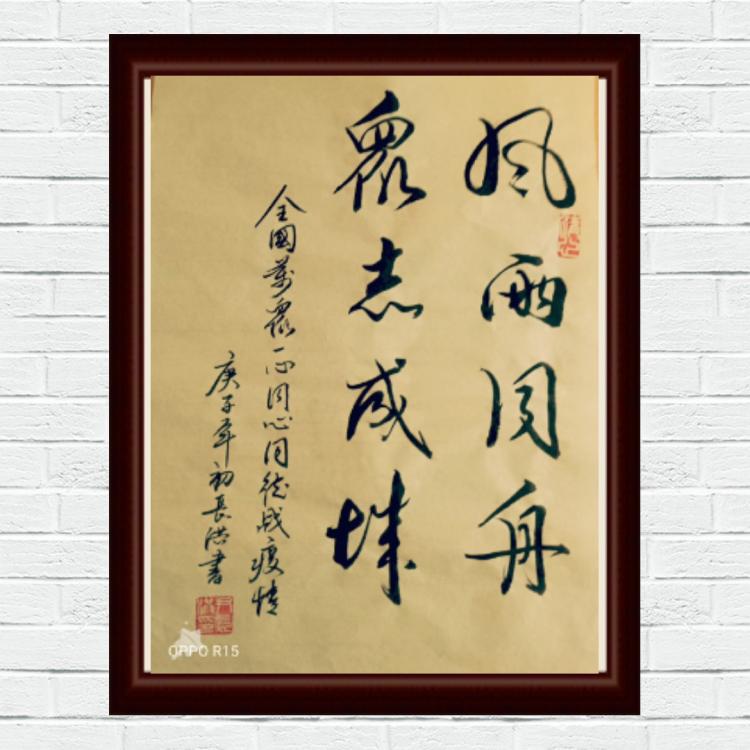 風雨同舟
眾志成城
全國萬眾一心同心同德战疫情
庚子年初長洪書
OPPO R15